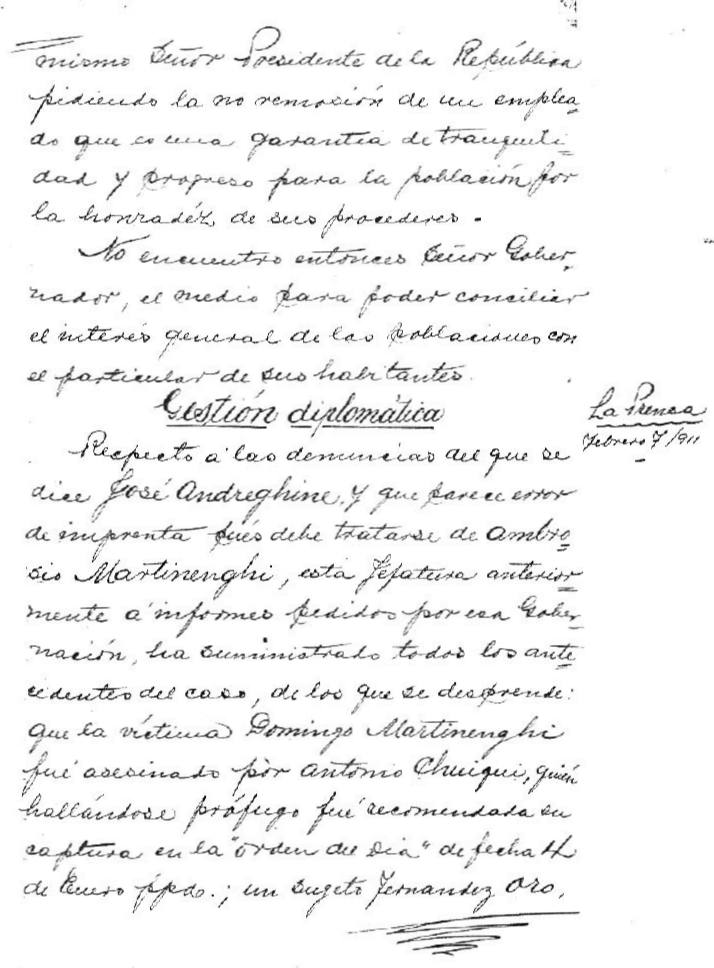 mismo Señor Presidente de la República
pidiendo la no remoción de un emplea=
do que es una garantia de tranquili=
dad y progreso para la población, por
la honradéz de sus procederes.
No encuentro entonces Señor Gober=
nador, el medio para poder conciliar
el interés general de las poblaciones con
el particular de sus habitantes.
Gestión diplomática
La Prensa
Febrero 7/911
Respecto á las denuncias del que se
dice José Andreghine, y que parece error
de imprenta pués debe tratarse de Ambro=
sio Martinenghi, esta Jefatura anterior=
mente á informes pedidos por esa Gober=
nación, ha suministrado todos los ante=
cedentes del caso, de los que se desprende:
que la víctima Domingo Martinenghi
fué asesinado pòr Antonio Chuiqui, quién
hallándose prófugo fué recomendada su
captura en la "orden del Dia" de fecha 4
de Enero ppdo.; un sugeto Fernandez Oro,